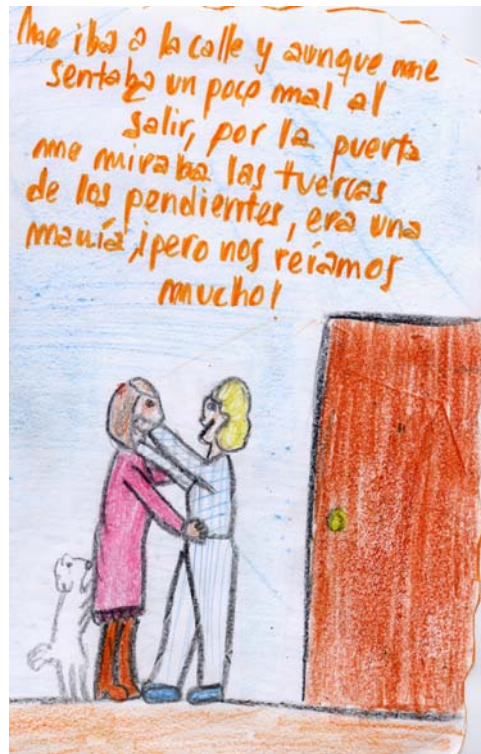 me iba a la calle y aunque me
sentaba un poco mal al
salir, por la puerta
me miraba las tuercas
de los pendientes, era una
manía ¡pero nos reíamos
mucho!